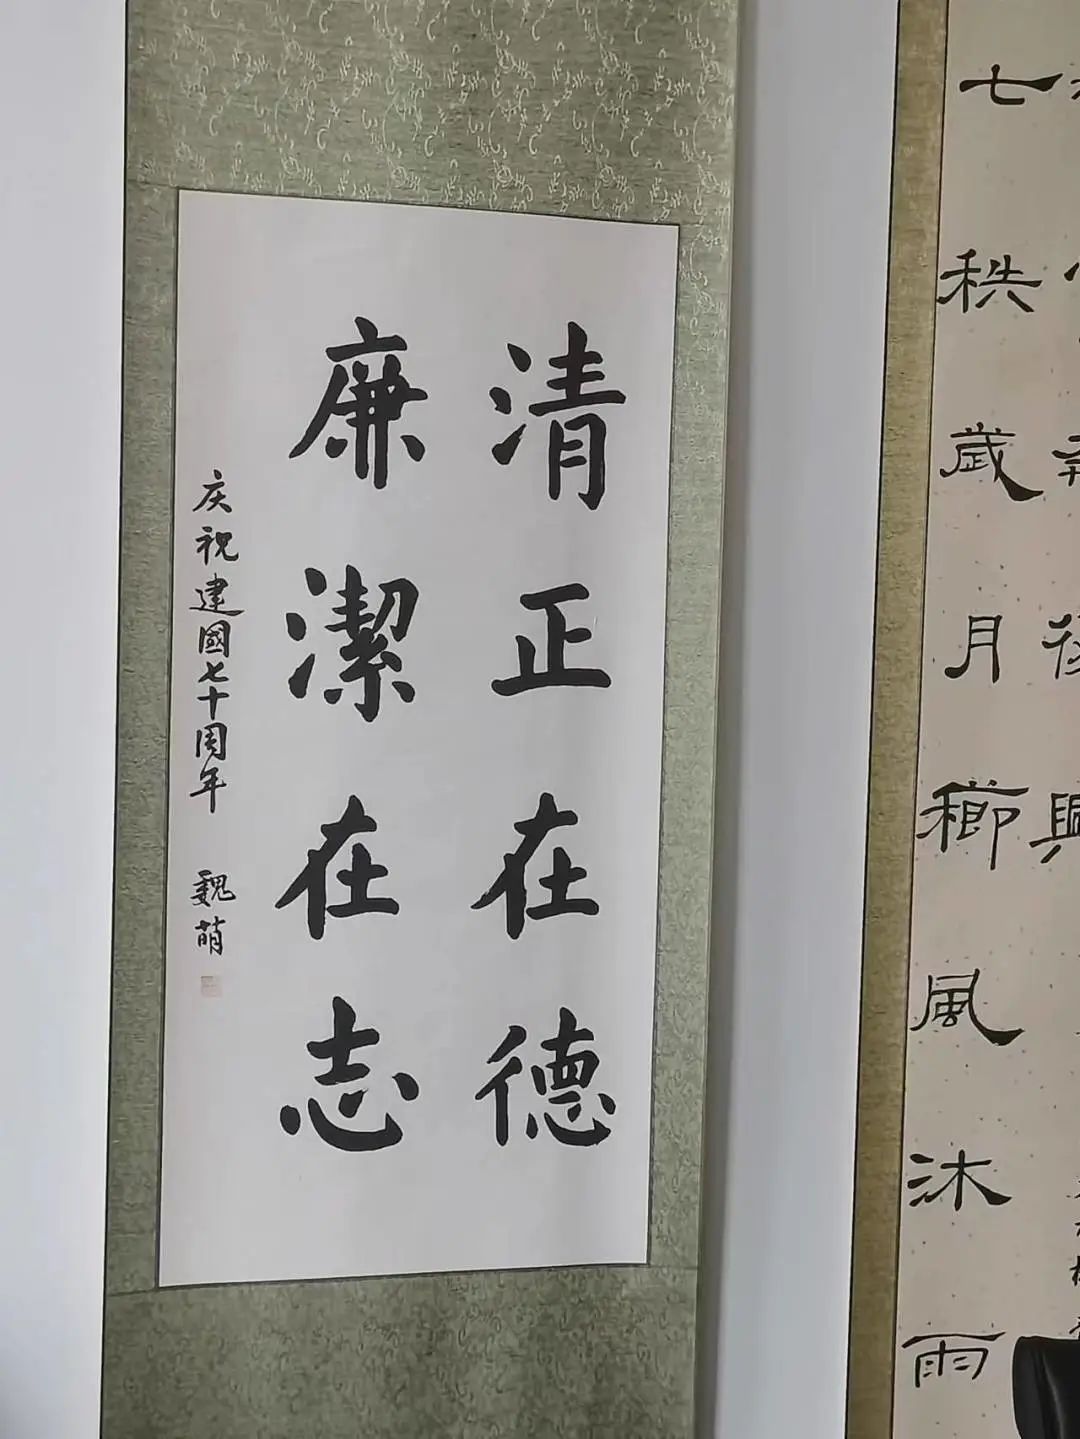 清正在德
廉潔在志
庆祝建國七十周年 魏萌
興
七秩歲月櫛風沐雨